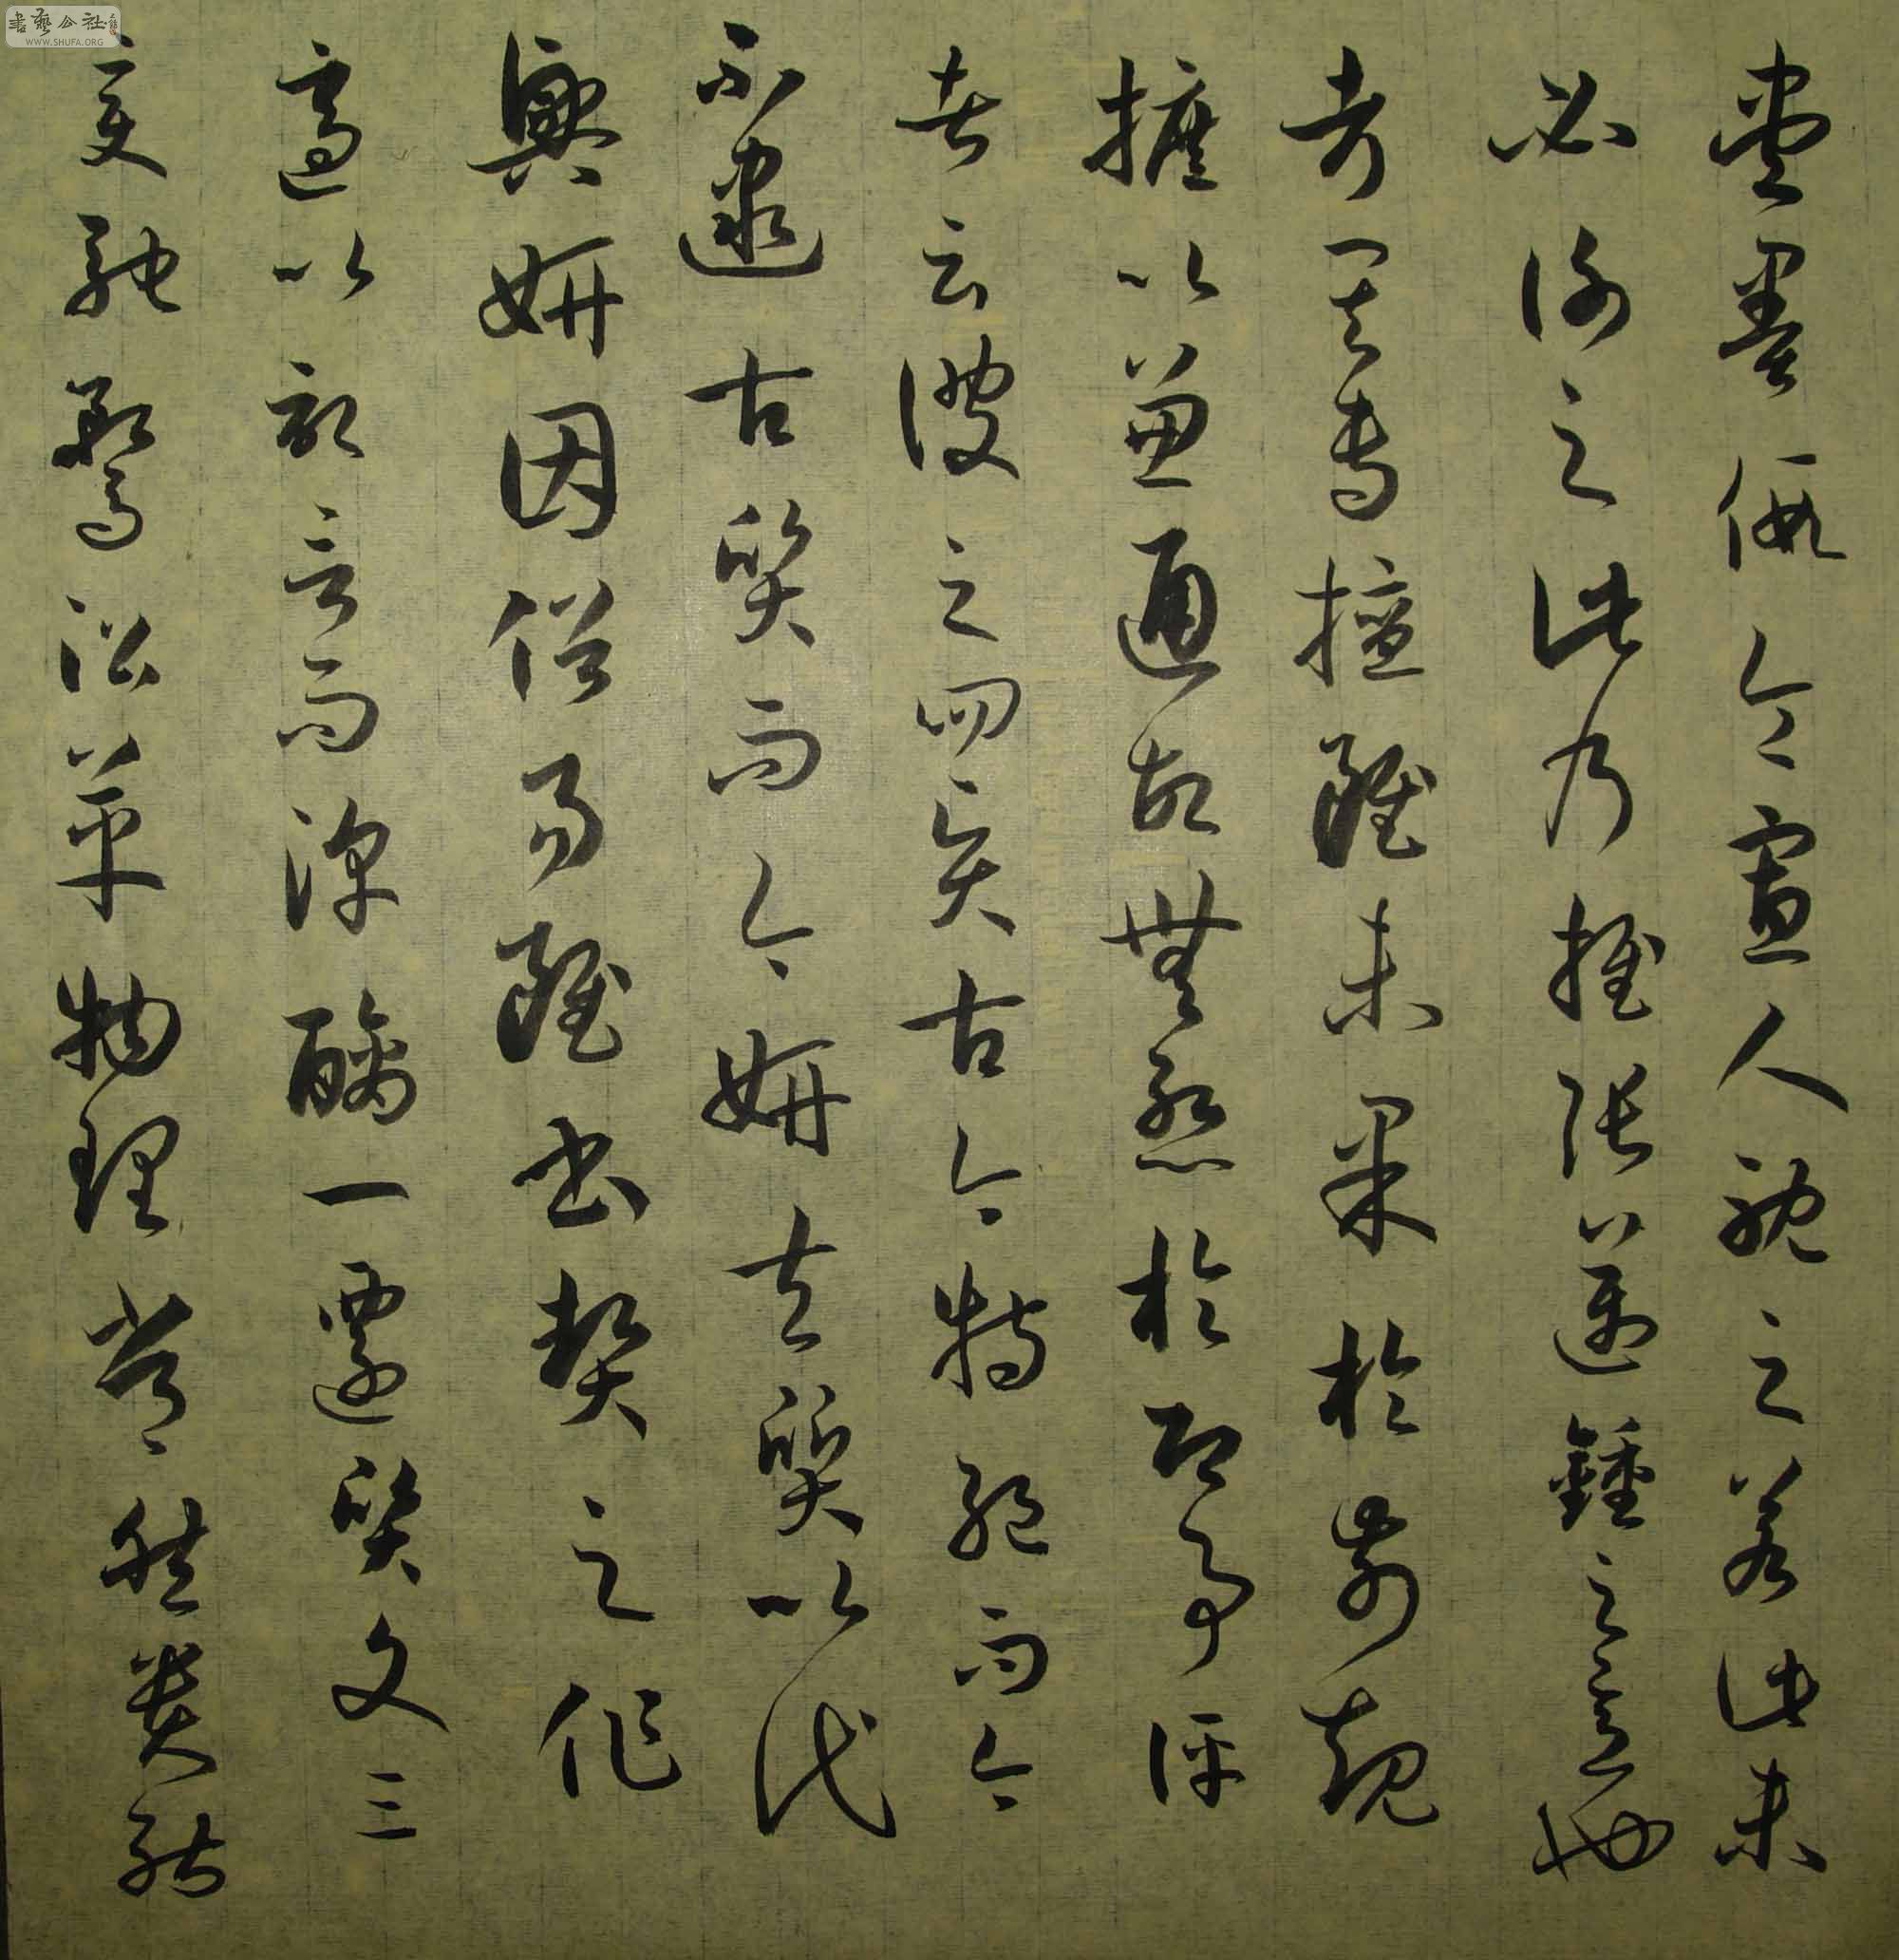 書藝公社
WWW.SHUFA.ORG
盡墨假令寡人耽之若此未
必謝之此乃推張邁鍾之意也
考其專擅雖未果於前規
摭以兼通故無慚於即事評
者云彼之四賢古今特絕而今
不逮古質而今妍夫質以代
興妍因俗易雖書契之作
適以記言而淳醨一遷質文三
變馳鶩沿革物理常然貴能